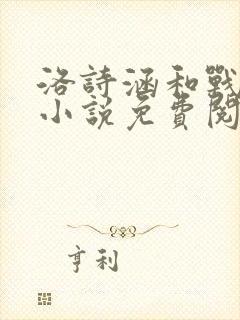 洛詩涵和戰
小說免費閱
亨利